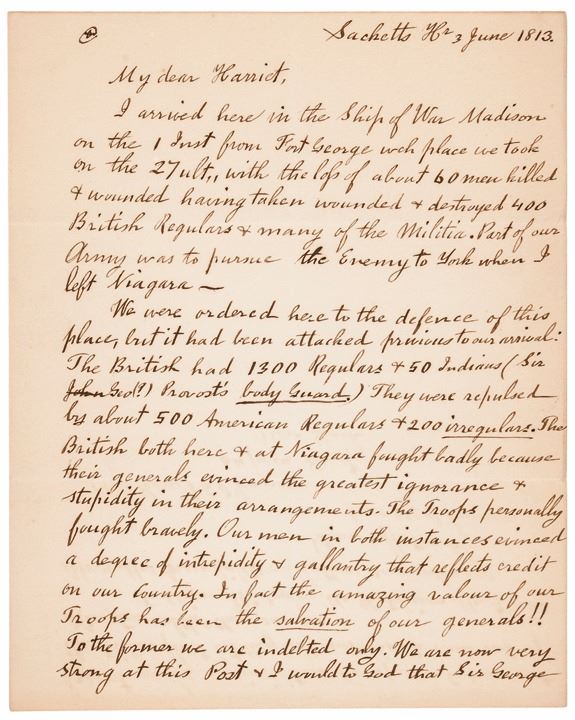 Sacketts Hr 3 June 1813.
My dear Harriet,
I arrived here in the Ship of War Madison
on the 1 Inst from Fort George wch place we took
on the 27 ult., with the loss of about 60 men killed
& wounded having taken wounded & destroyed 400
British Regulars & many of the Militia. Part of our
Army was to pursue the Enemy to York when I
left Niagara —
We were ordered here to the defence of this
place, but it had been attacked previous to our arrival:
The British had 1300 Regulars & 50 Indians (Sir
John Geo(?) Provost's body Guard.) They were repulsed
by about 500 American Regulars & 200 irregulars. The
British both here & at Niagara fought badly because
their generals evinced the greatest ignorance &
stupidity in their arrangements. The Troops personally
fought bravely. Our men in both instances evinced
a degree of intrepidity & gallantry that reflects credit
on our Country. In fact the amazing valour of our
Troops has been the salvation of our generals!!
To the former we are indebted only. We are now very
strong at this Post & I would to God that Sir George